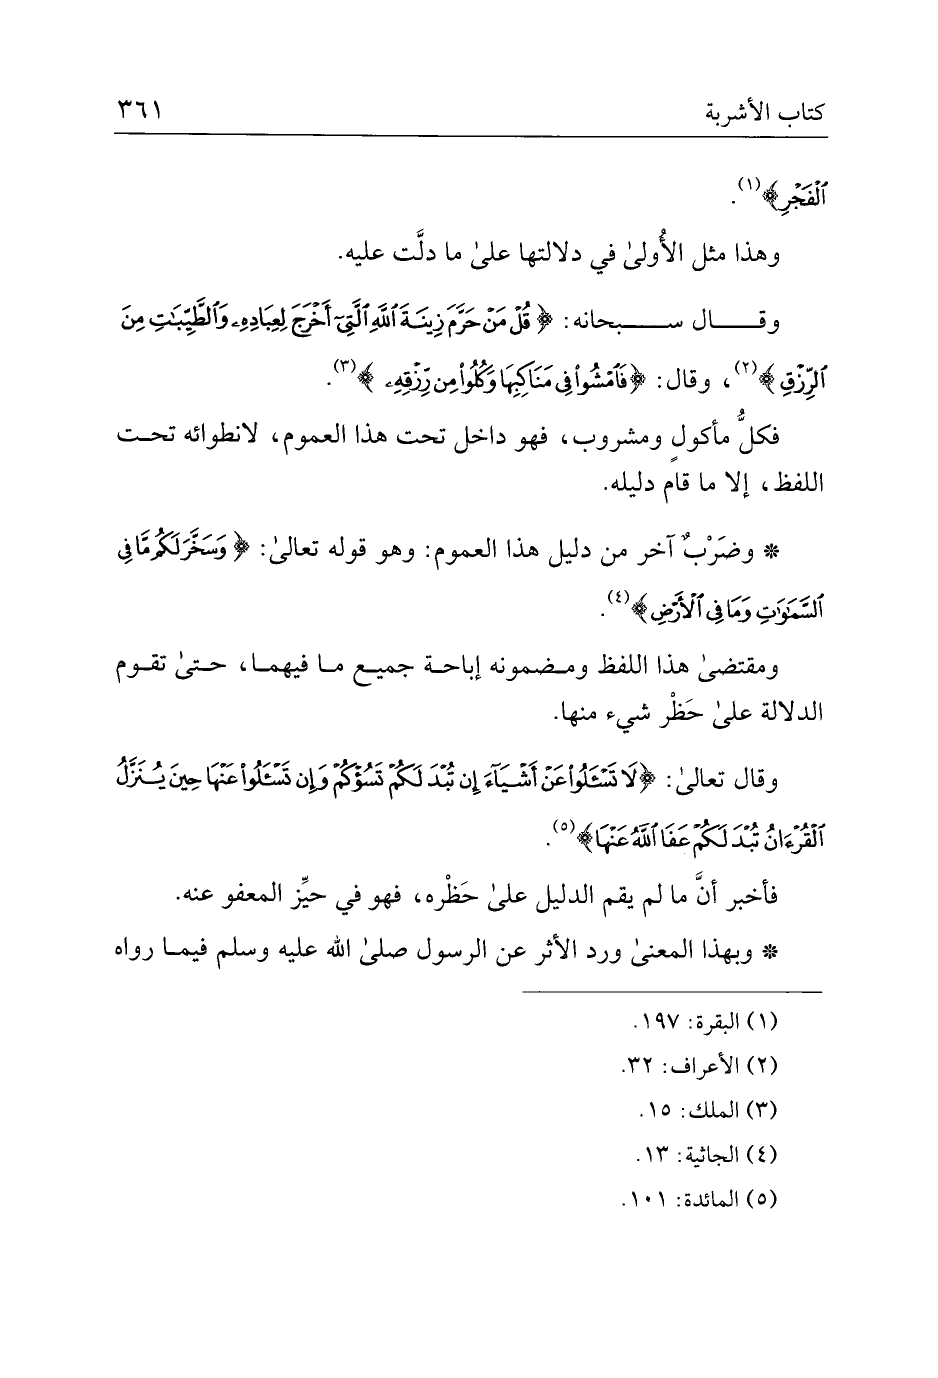 كتاب الأشربة ٣٦١
ٱلۡفَجۡرِ﴾(١).
وهذا مثل الأُولىٰ في دلالتها علىٰ ما دلَّت عليه.
وقـــــال ســـــبحانه: ﴿قُلۡ مَنۡ حَرَّمَ زِينَةَ ٱللَّهِ ٱلَّتِيٓ أَخۡرَجَ لِعِبَادِهِۦ وَٱلطَّيِّبَٰتِ مِنَ
ٱلرِّزۡقِ﴾(٢)، وقال: ﴿فَٱمۡشُواْ فِي مَنَاكِبِهَا وَكُلُواْ مِن رِّزۡقِهِۦ﴾(٣).
فكلُّ مأكولٍ ومشروب، فهو داخل تحت هذا العموم، لانطوائه تحـت
اللفظ، إلا ما قام دليله.
* وضَرْبٌ آخر من دليل هذا العموم: وهو قوله تعالىٰ: ﴿وَسَخَّرَ لَكُم مَّا فِي
ٱلسَّمَٰوَٰتِ وَمَا فِي ٱلۡأَرۡضِ﴾(٤).
ومقتضىٰ هذا اللفظ ومـضمونه إباحـة جميـع مـا فيهمـا، حـتىٰ تقـوم
الدلالة علىٰ حَظْر شيء منها.
وقال تعالىٰ: ﴿لَا تَسۡـَٔلُواْ عَنۡ أَشۡيَآءَ إِن تُبۡدَ لَكُمۡ تَسُؤۡكُمۡ وَإِن تَسۡـَٔلُواْ عَنۡهَا حِينَ يُنَزَّلُ
ٱلۡقُرۡءَانُ تُبۡدَ لَكُمۡ عَفَا ٱللَّهُ عَنۡهَا﴾(٥).
فأخبر أنَّ ما لم يقم الدليل علىٰ حَظْره، فهو في حيِّز المعفو عنه.
* وبهذا المعنىٰ ورد الأثر عن الرسول صلىٰ الله عليه وسلم فيمـا رواه
(١) البقرة: ١٩٧.
(٢) الأعراف: ٣٢.
(٣) الملك: ١٥.
(٤) الجاثية: ١٣.
(٥) المائدة: ١٠١.